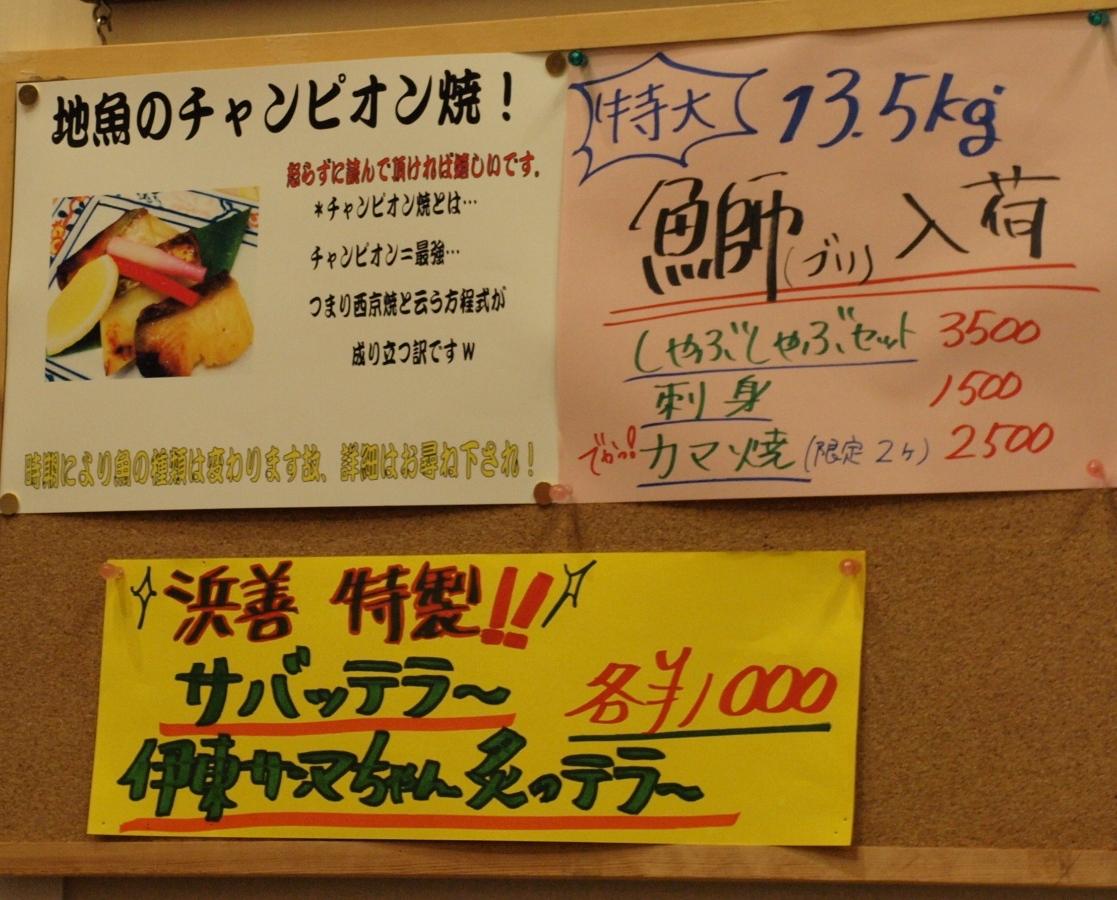 地魚のチャンピオン焼！
怒らずに読んで頂ければ嬉しいです。
＊チャンピオン焼とは…
チャンピオン＝最強…
つまり西京焼と云う方程式が
成り立つ訳ですｗ
時期により魚の種類は変わります故、詳細はお尋ね下され！
特大 13.5kg
鰤(ブリ) 入荷
しゃぶしゃぶセット 3500
刺身 1500
でかっ! カマ焼 (限定2ヶ) 2500
浜善 特製!!
サバッテラ〜 各¥1000
伊東サンマちゃん炙ってラ〜